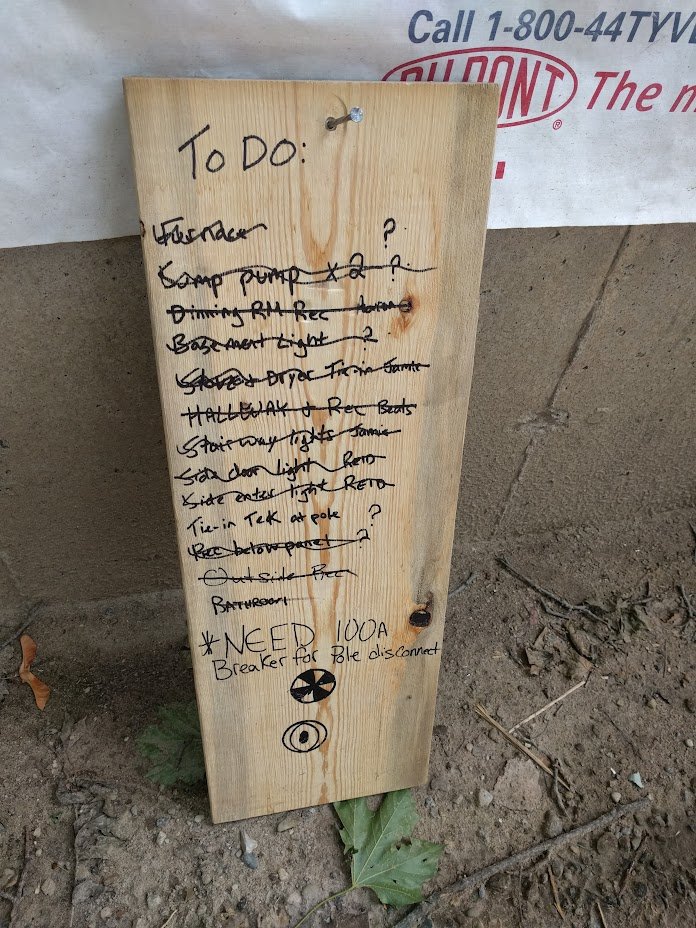 Call 1-800-44TYV
DUPONT ® The m
To Do:
Furnace ?
Sump pump x 2 ?
Dinning RM Rec
Basement Light 2
Stove & Dryer Tie-in Jamie
HALLWAY + Rec Beals
Stairway lights Jamie
Side door light REID
Side enter light REID
Tie-in Teck at pole ?
Rec below panel ?
Outside Rec
BATHROOM
*NEED 100A
Breaker for Pole disconnect